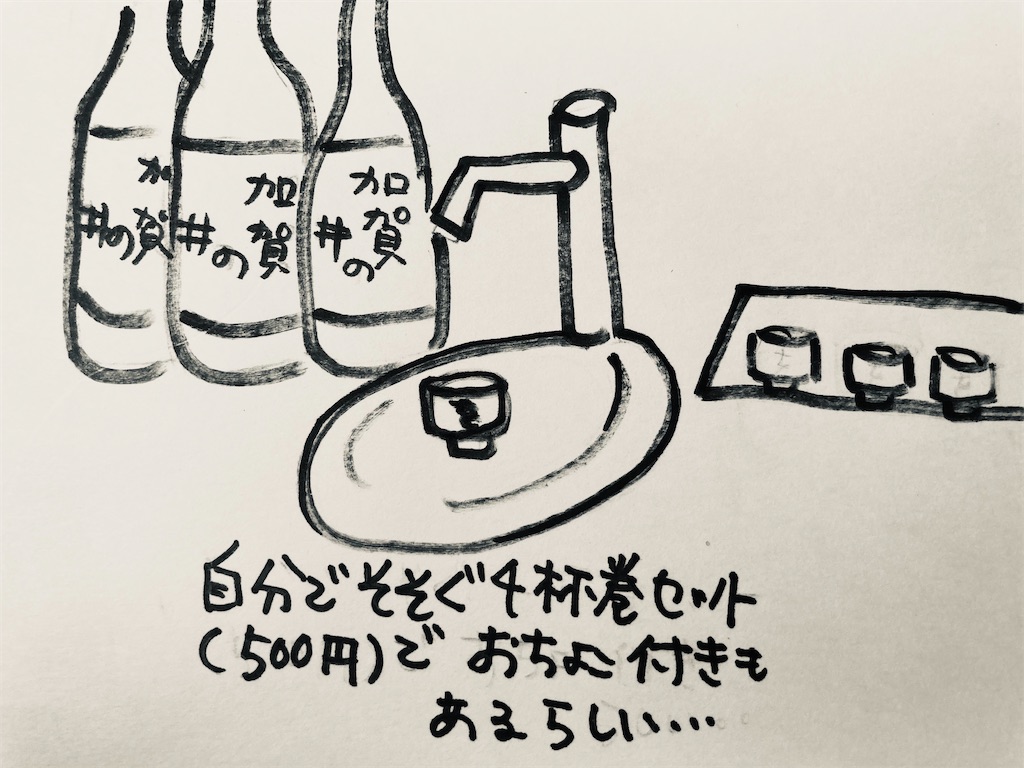 加賀の井
加賀の井
加賀の井
自分でそそぐ4杯巻セット
(500円)で おちょこ付きも
あるらしい…